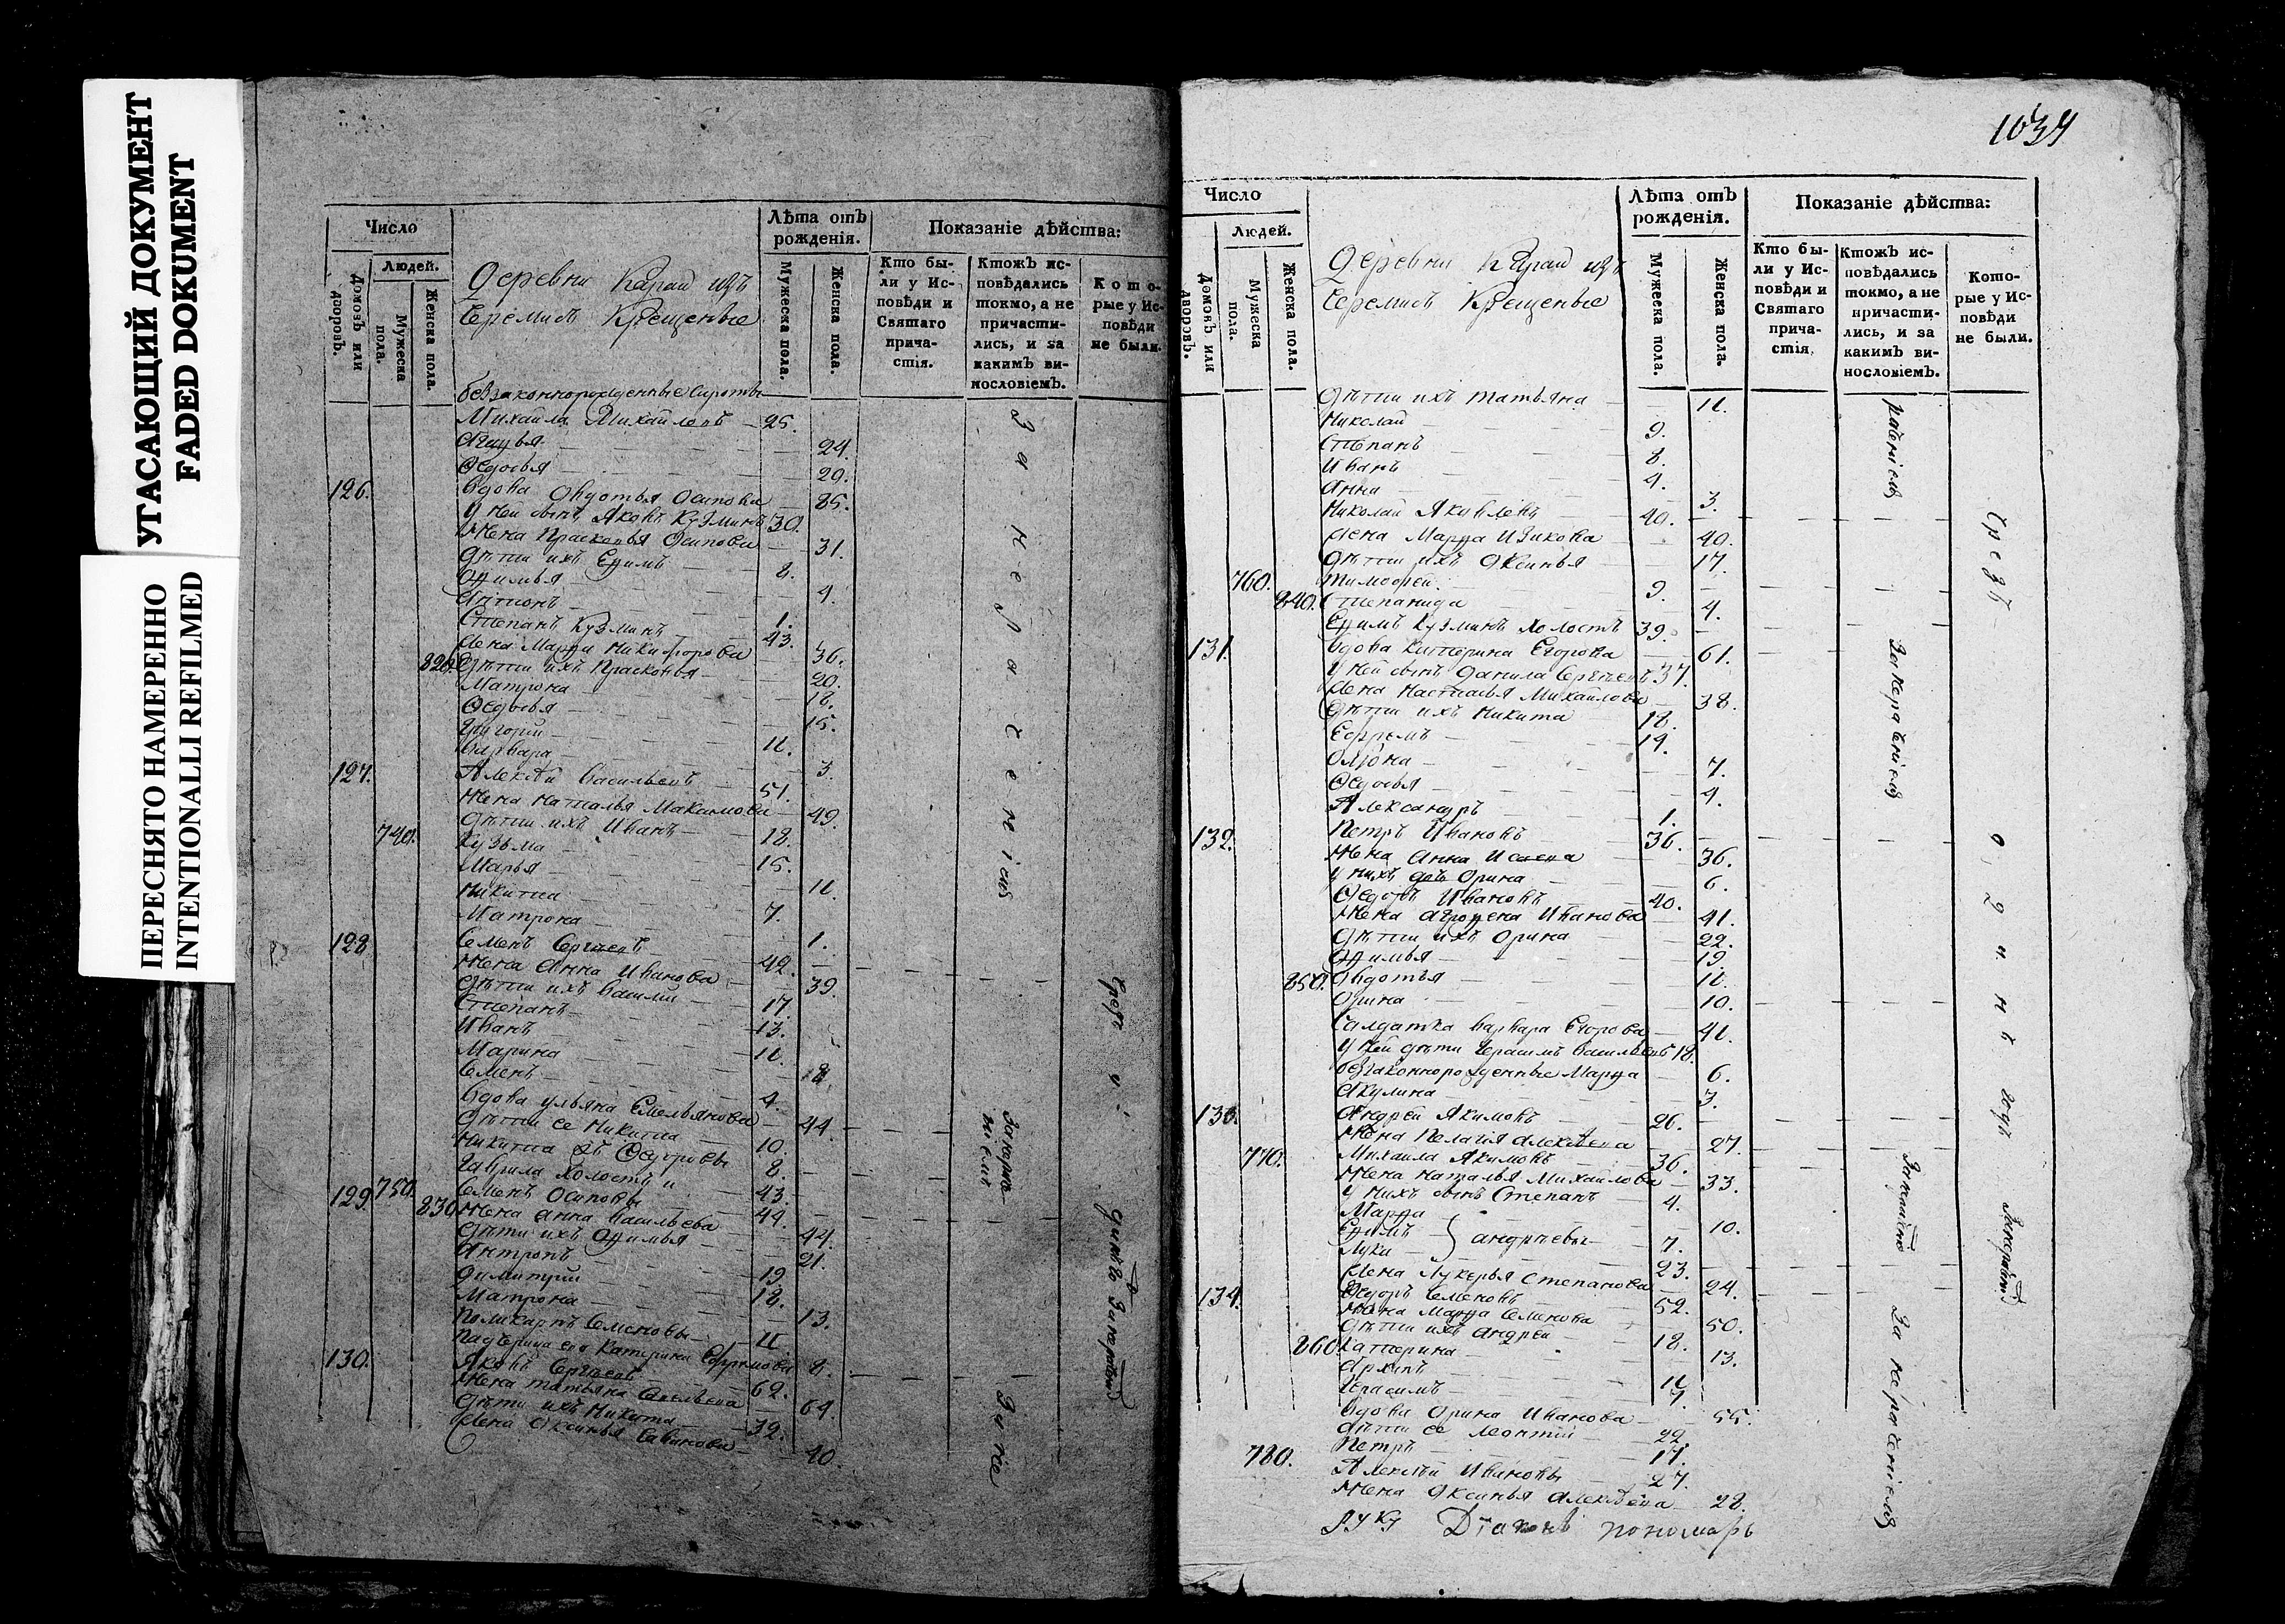 УГАСАЮЩИЙ ДОКУМЕНТ
FADED DOKUMENT
ПЕРЕСНЯТО НАМЕРЕННО
INTENTIONALLI REFILMED
Число
Людей.
Домовъ или дворовъ.
Мужеска пола.
Женска пола.
Деревни Карай изъ
Черемисъ Крещеные
Лѣта отъ рожденія.
Мужеска пола.
Женска пола.
Показаніе дѣйства:
Кто бы-
ли у Ис-
повѣди и
Святаго
прича-
стія.
Ктожъ ис-
повѣдались
токмо, а не
причасти-
лись, и за
какимъ ви-
нословіемъ.
Кото-
рые у Ис-
повѣди
не были.
безаконнорожденные сироты
Михайла Михайловъ 25.
24.
Ѳедосья 20.
126. Вдова Овдотья Осипова 85.
У ней сынъ Яковъ Кузминъ 30.
Жена Прасковья Осипова 31.
Дѣти ихъ Ефимъ 8.
Офимья 4.
Антонъ 1.
Степанъ Кузминъ 43.
Жена Марфа Никифорова 36.
820. Дѣти ихъ Прасковья 20.
Матрона 18.
Ѳедосья 15.
Григорій 11.
Варвара 3.
127. Алексѣй Васильевъ 51.
Жена Наталья Максимова 49.
740. Дѣти ихъ Иванъ 18.
Кузьма 15.
Марья 11.
Никита 7.
Матрона 1.
128. Семенъ Сергѣевъ 42.
Жена Анна Иванова 39.
Дѣти ихъ Василій 17.
Степанъ 13.
Иванъ 11.
Марина 8.
Семенъ 4.
Вдова Ульяна Емельянова 44.
Дѣти ее Никита 10.
Никита Ѳедоровы 8.
Гаврила холостъ и 43.
129. 750. Семенъ Осиповы 44.
830. Жена Анна Васильева 44.
Дѣти ихъ Офимья 21.
Антропъ 19.
Димитрій 18.
Матрона 13.
Поликарпъ Семеновы 11.
Падчерица его Катерина Ефремова 8.
130. Яковъ Сергѣевъ 62.
Жена Татьяна Савельева 64.
Дѣти ихъ Никита 39.
Жена Оксинья Савинова 40.
За нераченіемъ
За нераченіемъ
За не
1034
Число
Людей.
Домовъ или дворовъ.
Мужеска пола.
Женска пола.
Деревни Карай изъ
Черемисъ Крещеные
Лѣта отъ
рожденія.
Мужеска пола.
Женска пола.
Показаніе дѣйства:
Кто бы-
ли у Ис-
повѣди и
Святаго
прича-
стія.
Ктожъ ис-
повѣдались
токмо, а не
причасти-
лись, и за
какимъ ви-
нословіемъ.
Кото-
рые у Ис-
повѣди
не были.
Дѣти ихъ Татьяна 11.
Николай 9.
Степанъ 8.
Иванъ 4.
Анна 3.
Николай Яковлевъ 40.
Жена Марфа 40.
Дѣти ихъ Оксинья 17.
760. Тимоѳей 9.
840. Степанида 4.
Ефимъ Кузминъ холостъ 39.
131. Вдова Катерина Егорова 61.
У ней сынъ Данила Сергѣевъ 37.
Жена Настасья Михайлова 38.
Дѣти ихъ Никита 18.
Ефремъ 14.
Олёна 7.
Ѳедосья 4.
Александръ 1.
132. Петръ Ивановъ 36.
Жена Анна Исаева 36.
У нихъ дочь Орина 6.
Ѳедотъ Ивановъ 40.
Жена Аграфена Иванова 41.
Дѣти ихъ Орина 22.
Офимья 19.
850. Овдотья 11.
Орина 10.
Салдатка Варвара Егорова 41.
У ней дѣти Герасимъ Васильевъ 18.
безаконнорожденные Марфа 6.
Акулина 3.
133. Андрей Якимовъ 26.
Жена Пелагія Алексѣева 27.
770. Михайла Якимовъ 36.
Жена Наталья Михайлова 33.
У нихъ сынъ Степанъ 4.
Марфа 10.
Ефимъ } Андрѣевы 7.
Лука 23.
Жена Лукерья Степанова 24.
134. Ѳедоръ Семеновъ 52.
Жена Марфа Семенова 50.
Дѣти ихъ Андрей 18.
860. Катерина 13.
Архипъ 11.
Герасимъ 7.
Вдова Орина Иванова 55.
Дѣти ее Леонтій 22.
780. Петръ 17.
Алексѣй Ивановы 27.
Жена Оксинья Алексѣева 28.
раченіемъ
За нераченіемъ
За нераченіемъ
Чрезъ одинъ годъ
руку Діаконъ пономарь